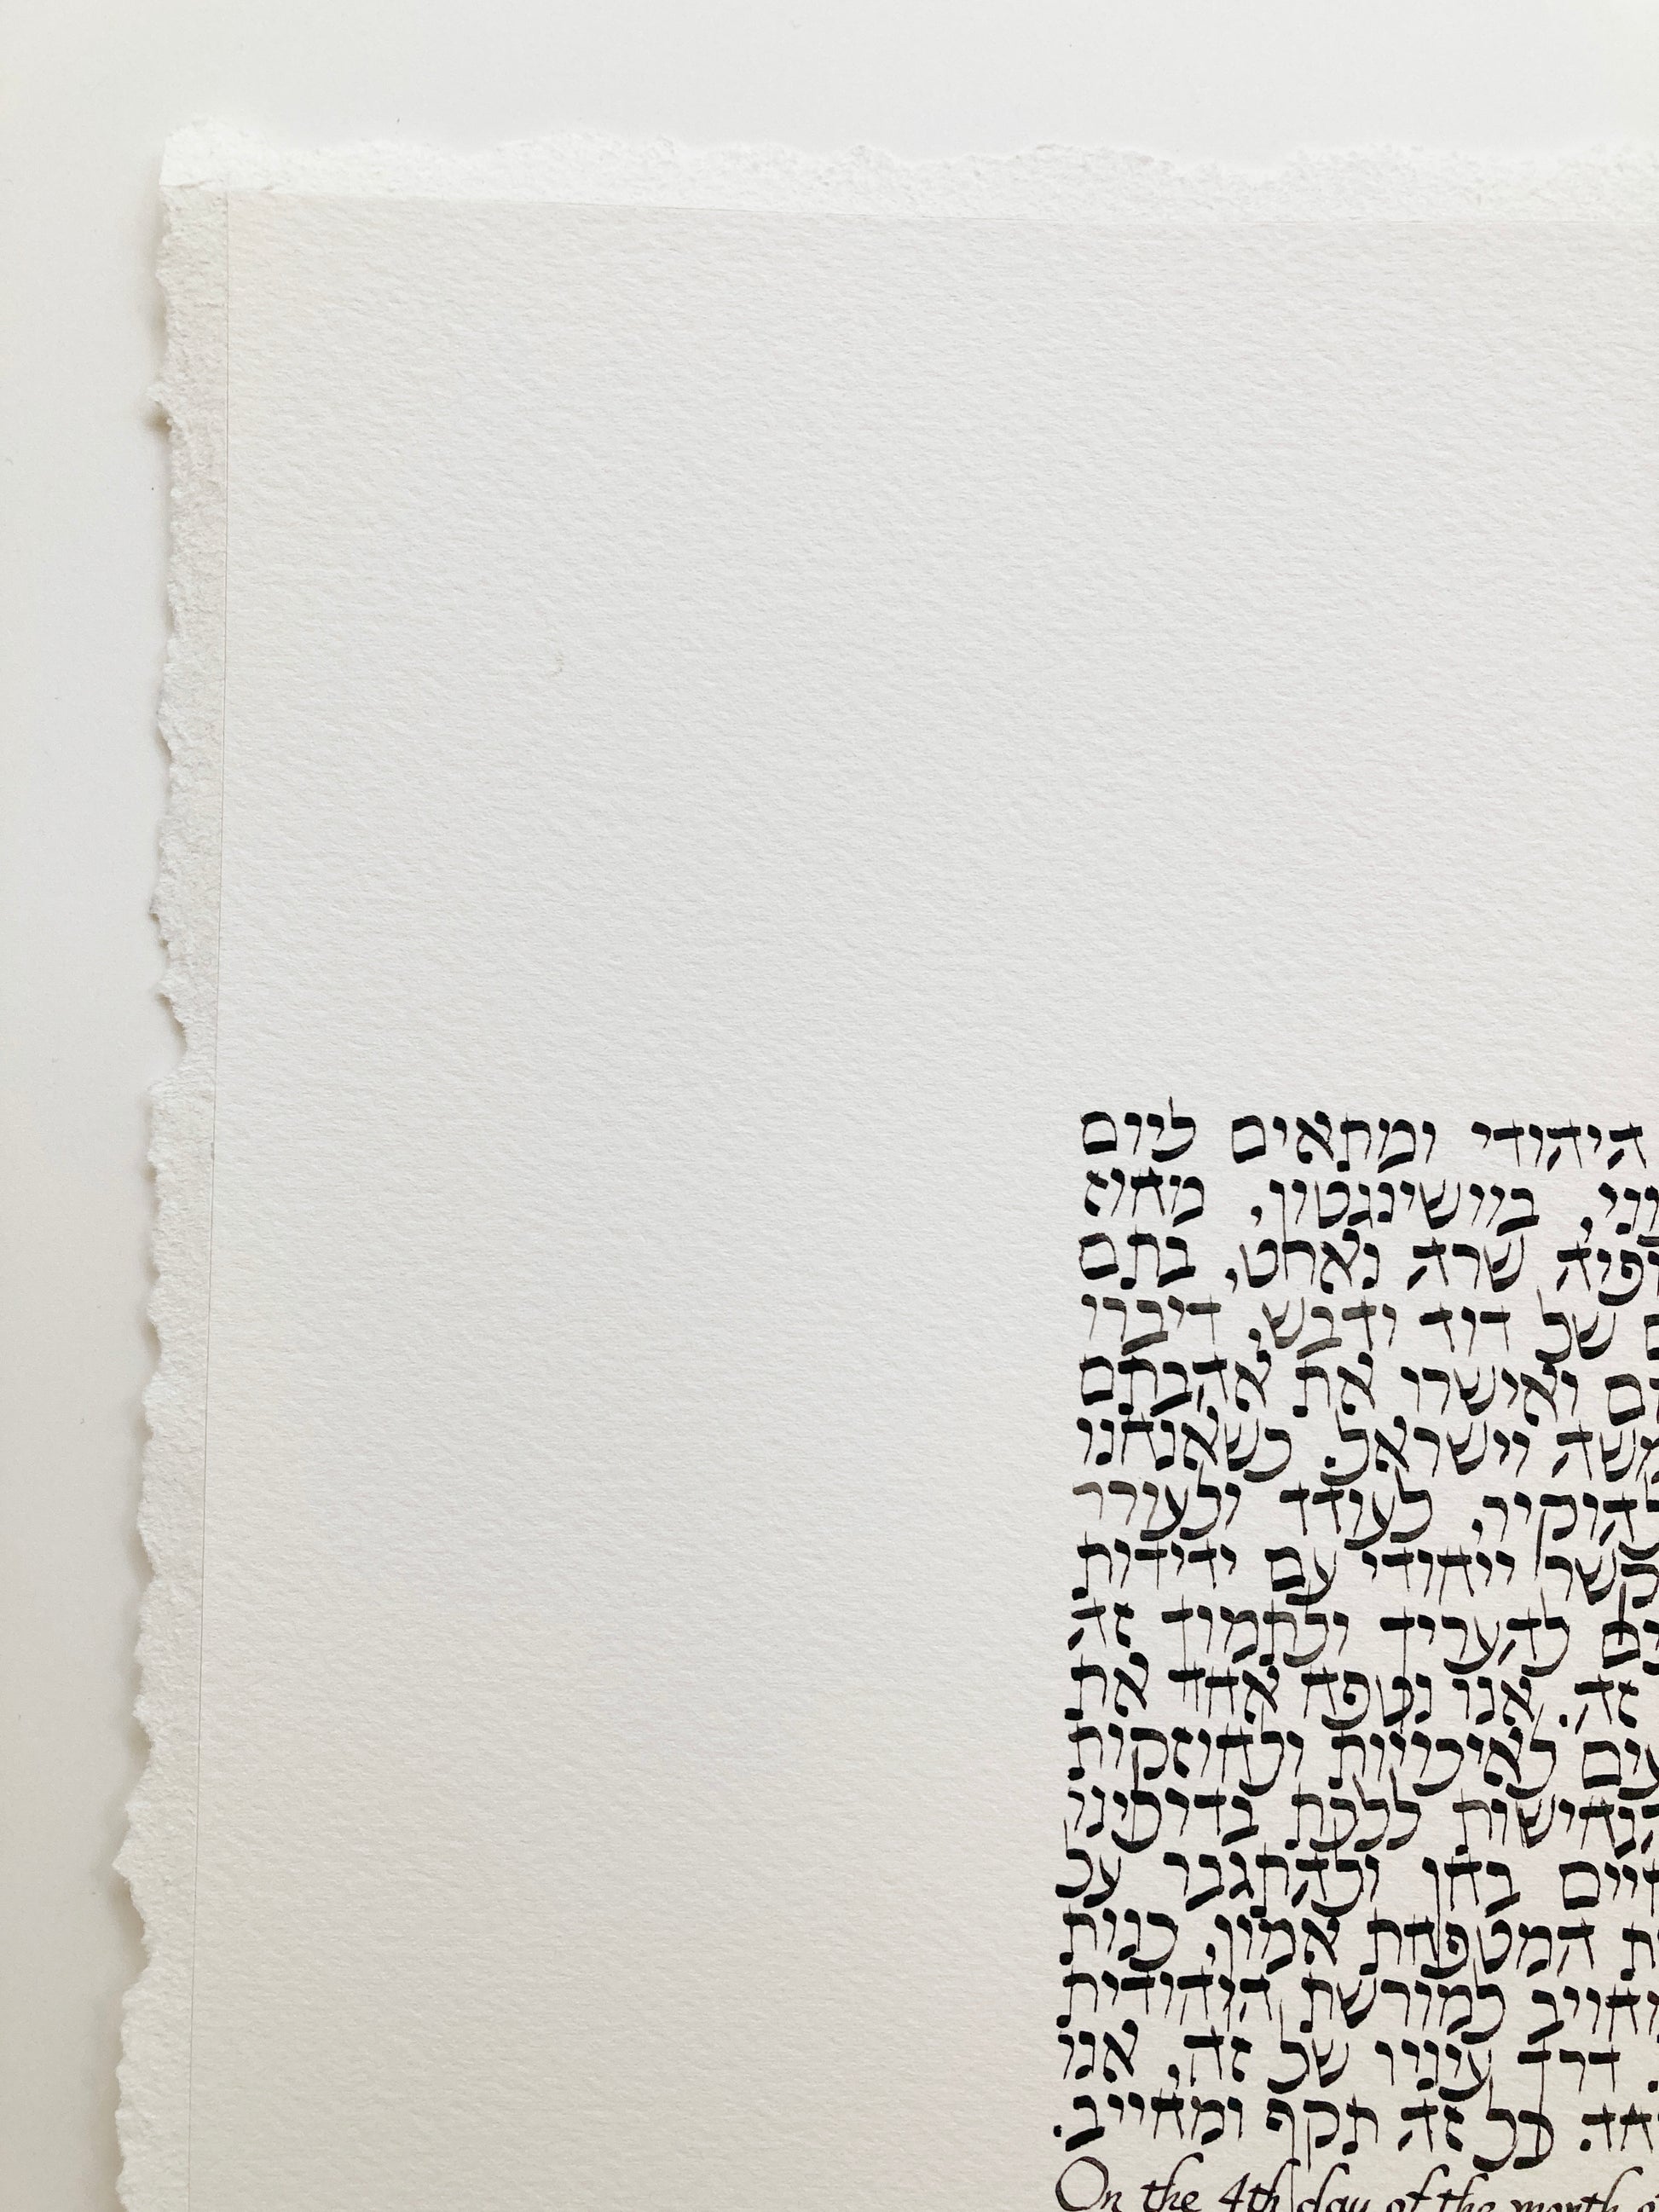 היהודי ומתאים ליום
ביישינגטון, מחוז
שרה גארט, בתם
של דוד ודבש, דיברו
ואישרו את אהבתם
וישראל. כשאנחנו
להוקיר, לעודד ולעורר
קשר ייחודי עם ידידות
להעריך ולתמוך זה
זה. אנו נטפח אחד את
לאיכויות ולחוזקות
הנחישות ללכת בדרכינו
בחן ולהתגבר על
המטפחת אמון, כנות
למורשת היהודית
דרך עיניו של זה. אנו
כל זה תקף ומחייב.
On the 4th day of the month